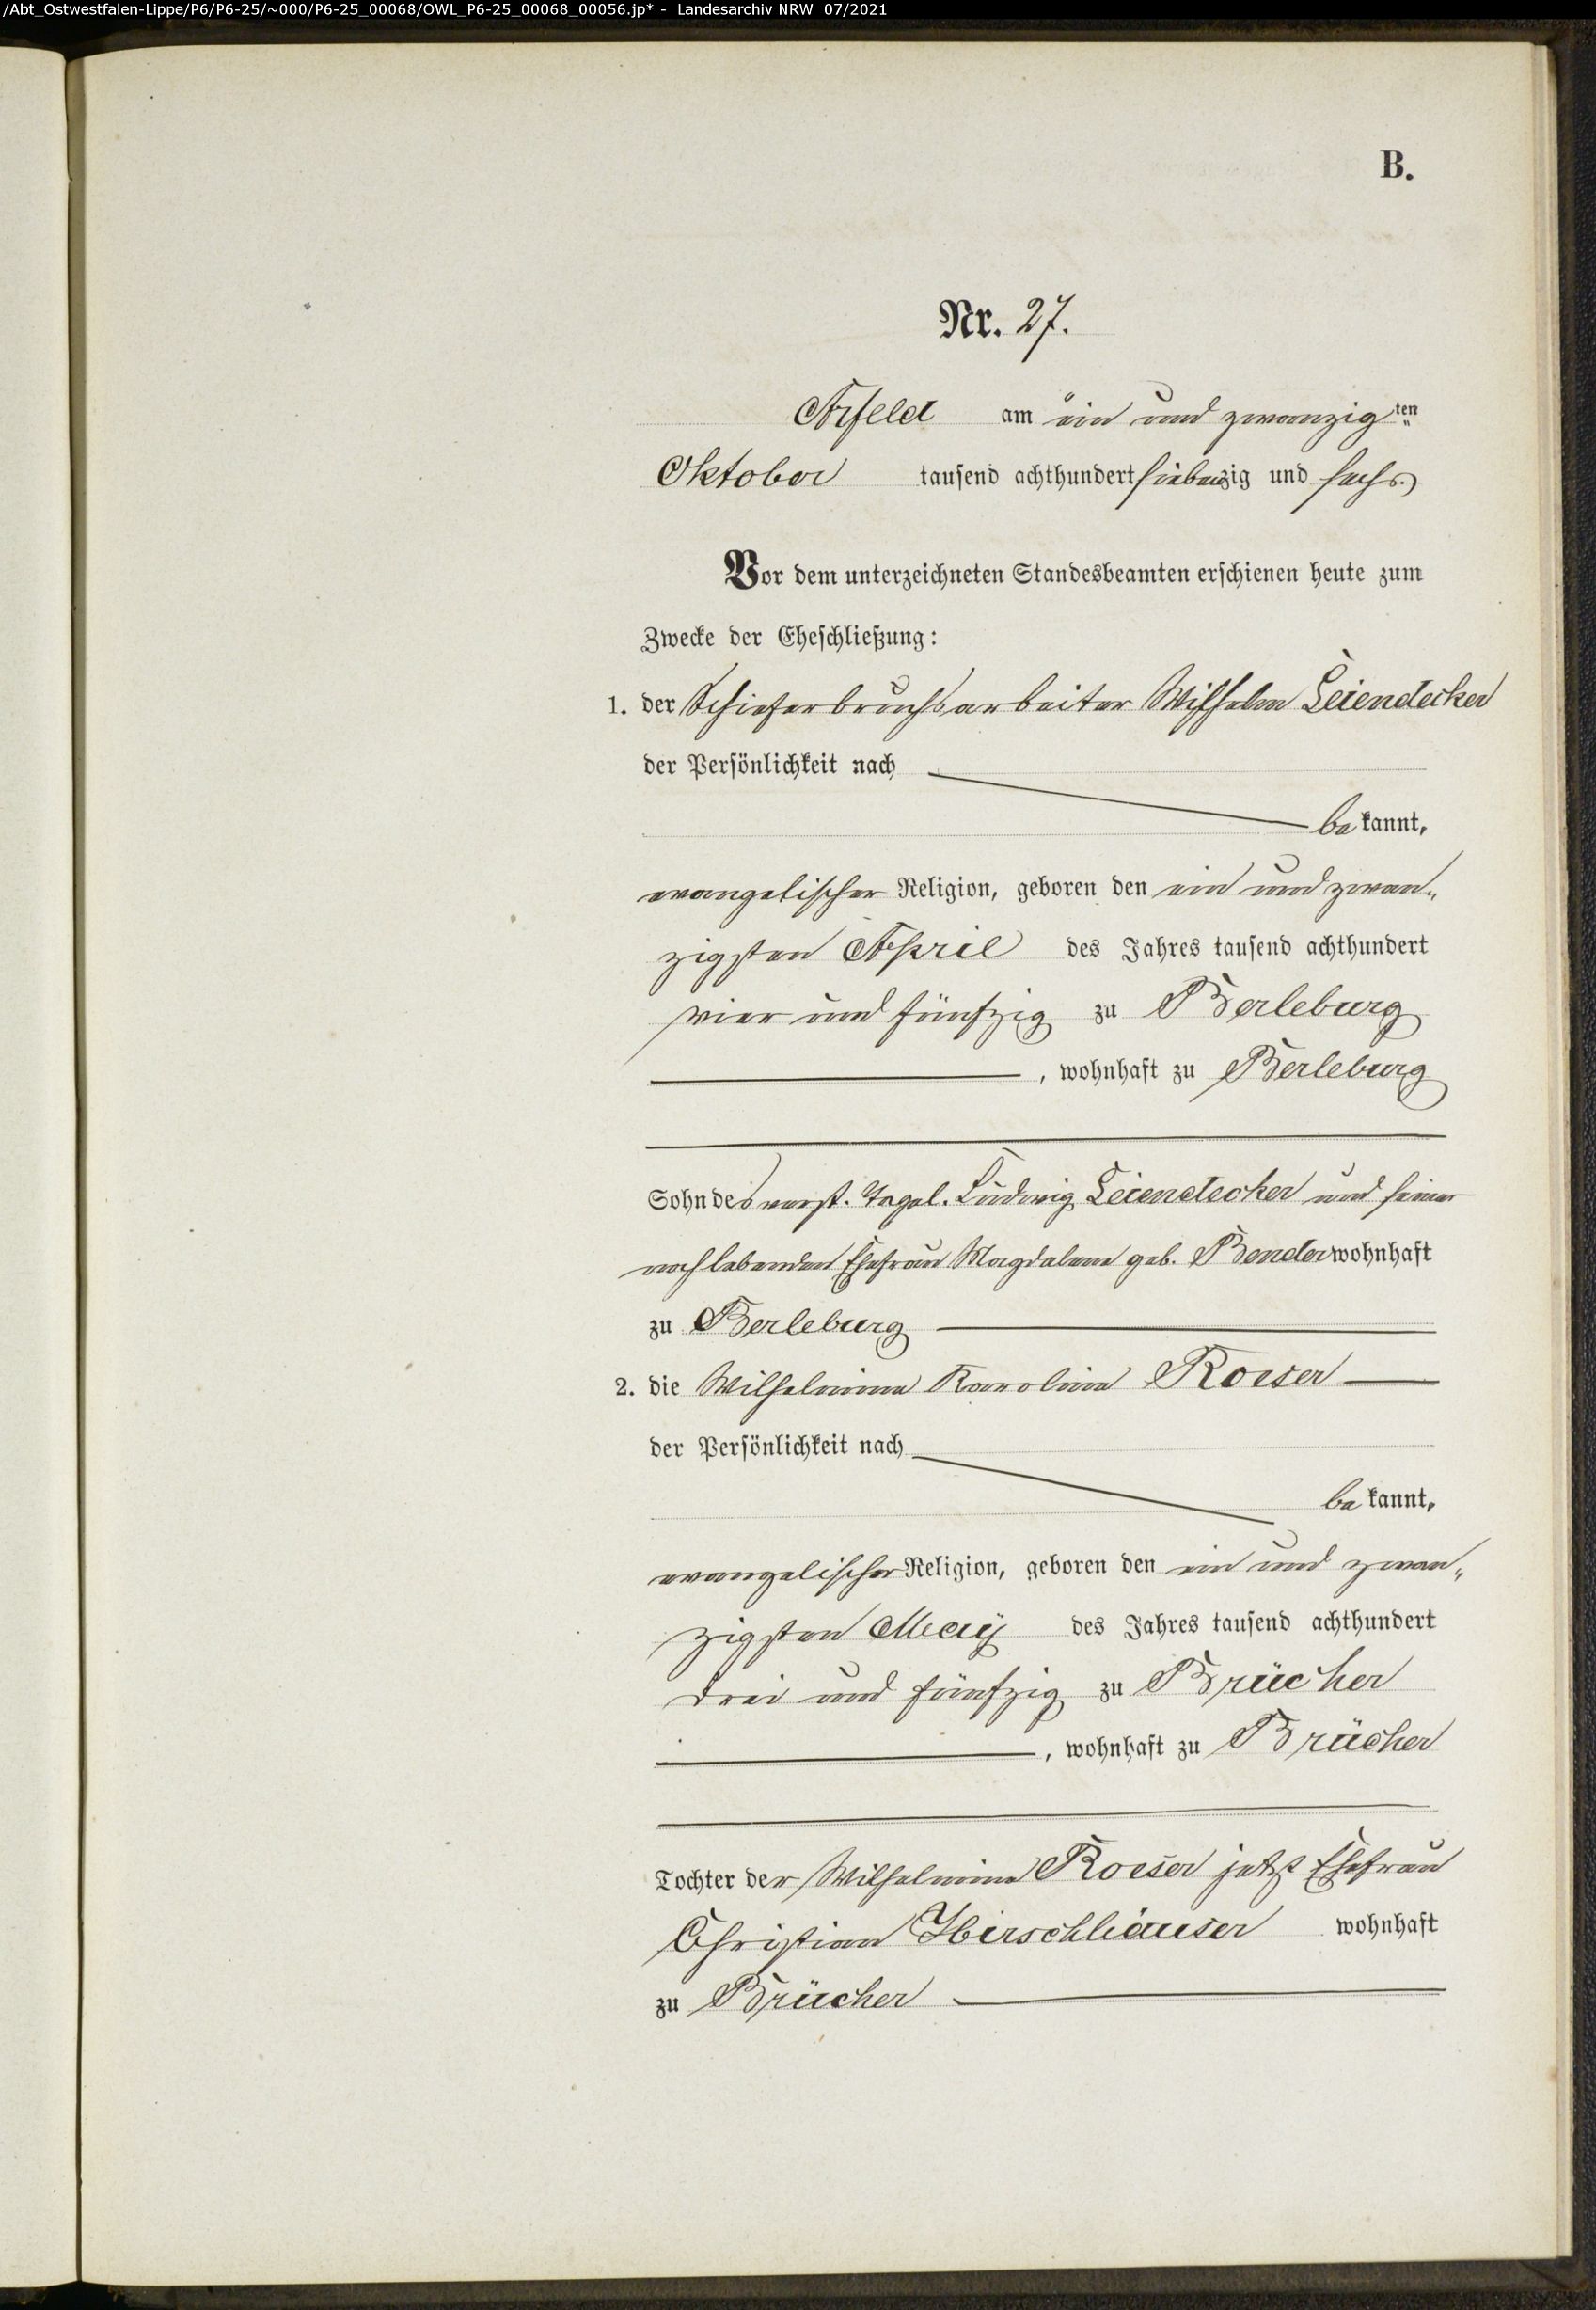 /Abt_Ostwestfalen-Lippe/P6/P6-25/~000/P6-25_00068/OWL_P6-25_00068_00056.jp* - Landesarchiv NRW 07/2021
B.
Nr. 27.
Arfeld am ein und zwanzigten
Oktober tausend achthundert siebenzig und sechs.
Vor dem unterzeichneten Standesbeamten erschienen heute zum
Zwecke der Eheschließung:
1. der Schieferbruchsarbeiter Wilhelm Leiendecker
der Persönlichkeit nach
bekannt,
evangelischer Religion, geboren den ein und zwan„
zigsten April des Jahres tausend achthundert
vier und fünfzig zu Berleburg
, wohnhaft zu Berleburg
Sohn des verst. Tagel. Ludwig Leiendecker und seiner
noch lebenden Ehefrau Magdalene geb. Bender wohnhaft
zu Berleburg
2. die Wilhelmine Karoline Roeser
der Persönlichkeit nach
bekannt,
evangelischer Religion, geboren den ein und zwan„
zigsten May des Jahres tausend achthundert
drei und fünfzig zu Brücher
, wohnhaft zu Brücher
Tochter der Wilhelmine Roeser jetzt Ehefrau
Christian Hirschhäuser wohnhaft
zu Brücher